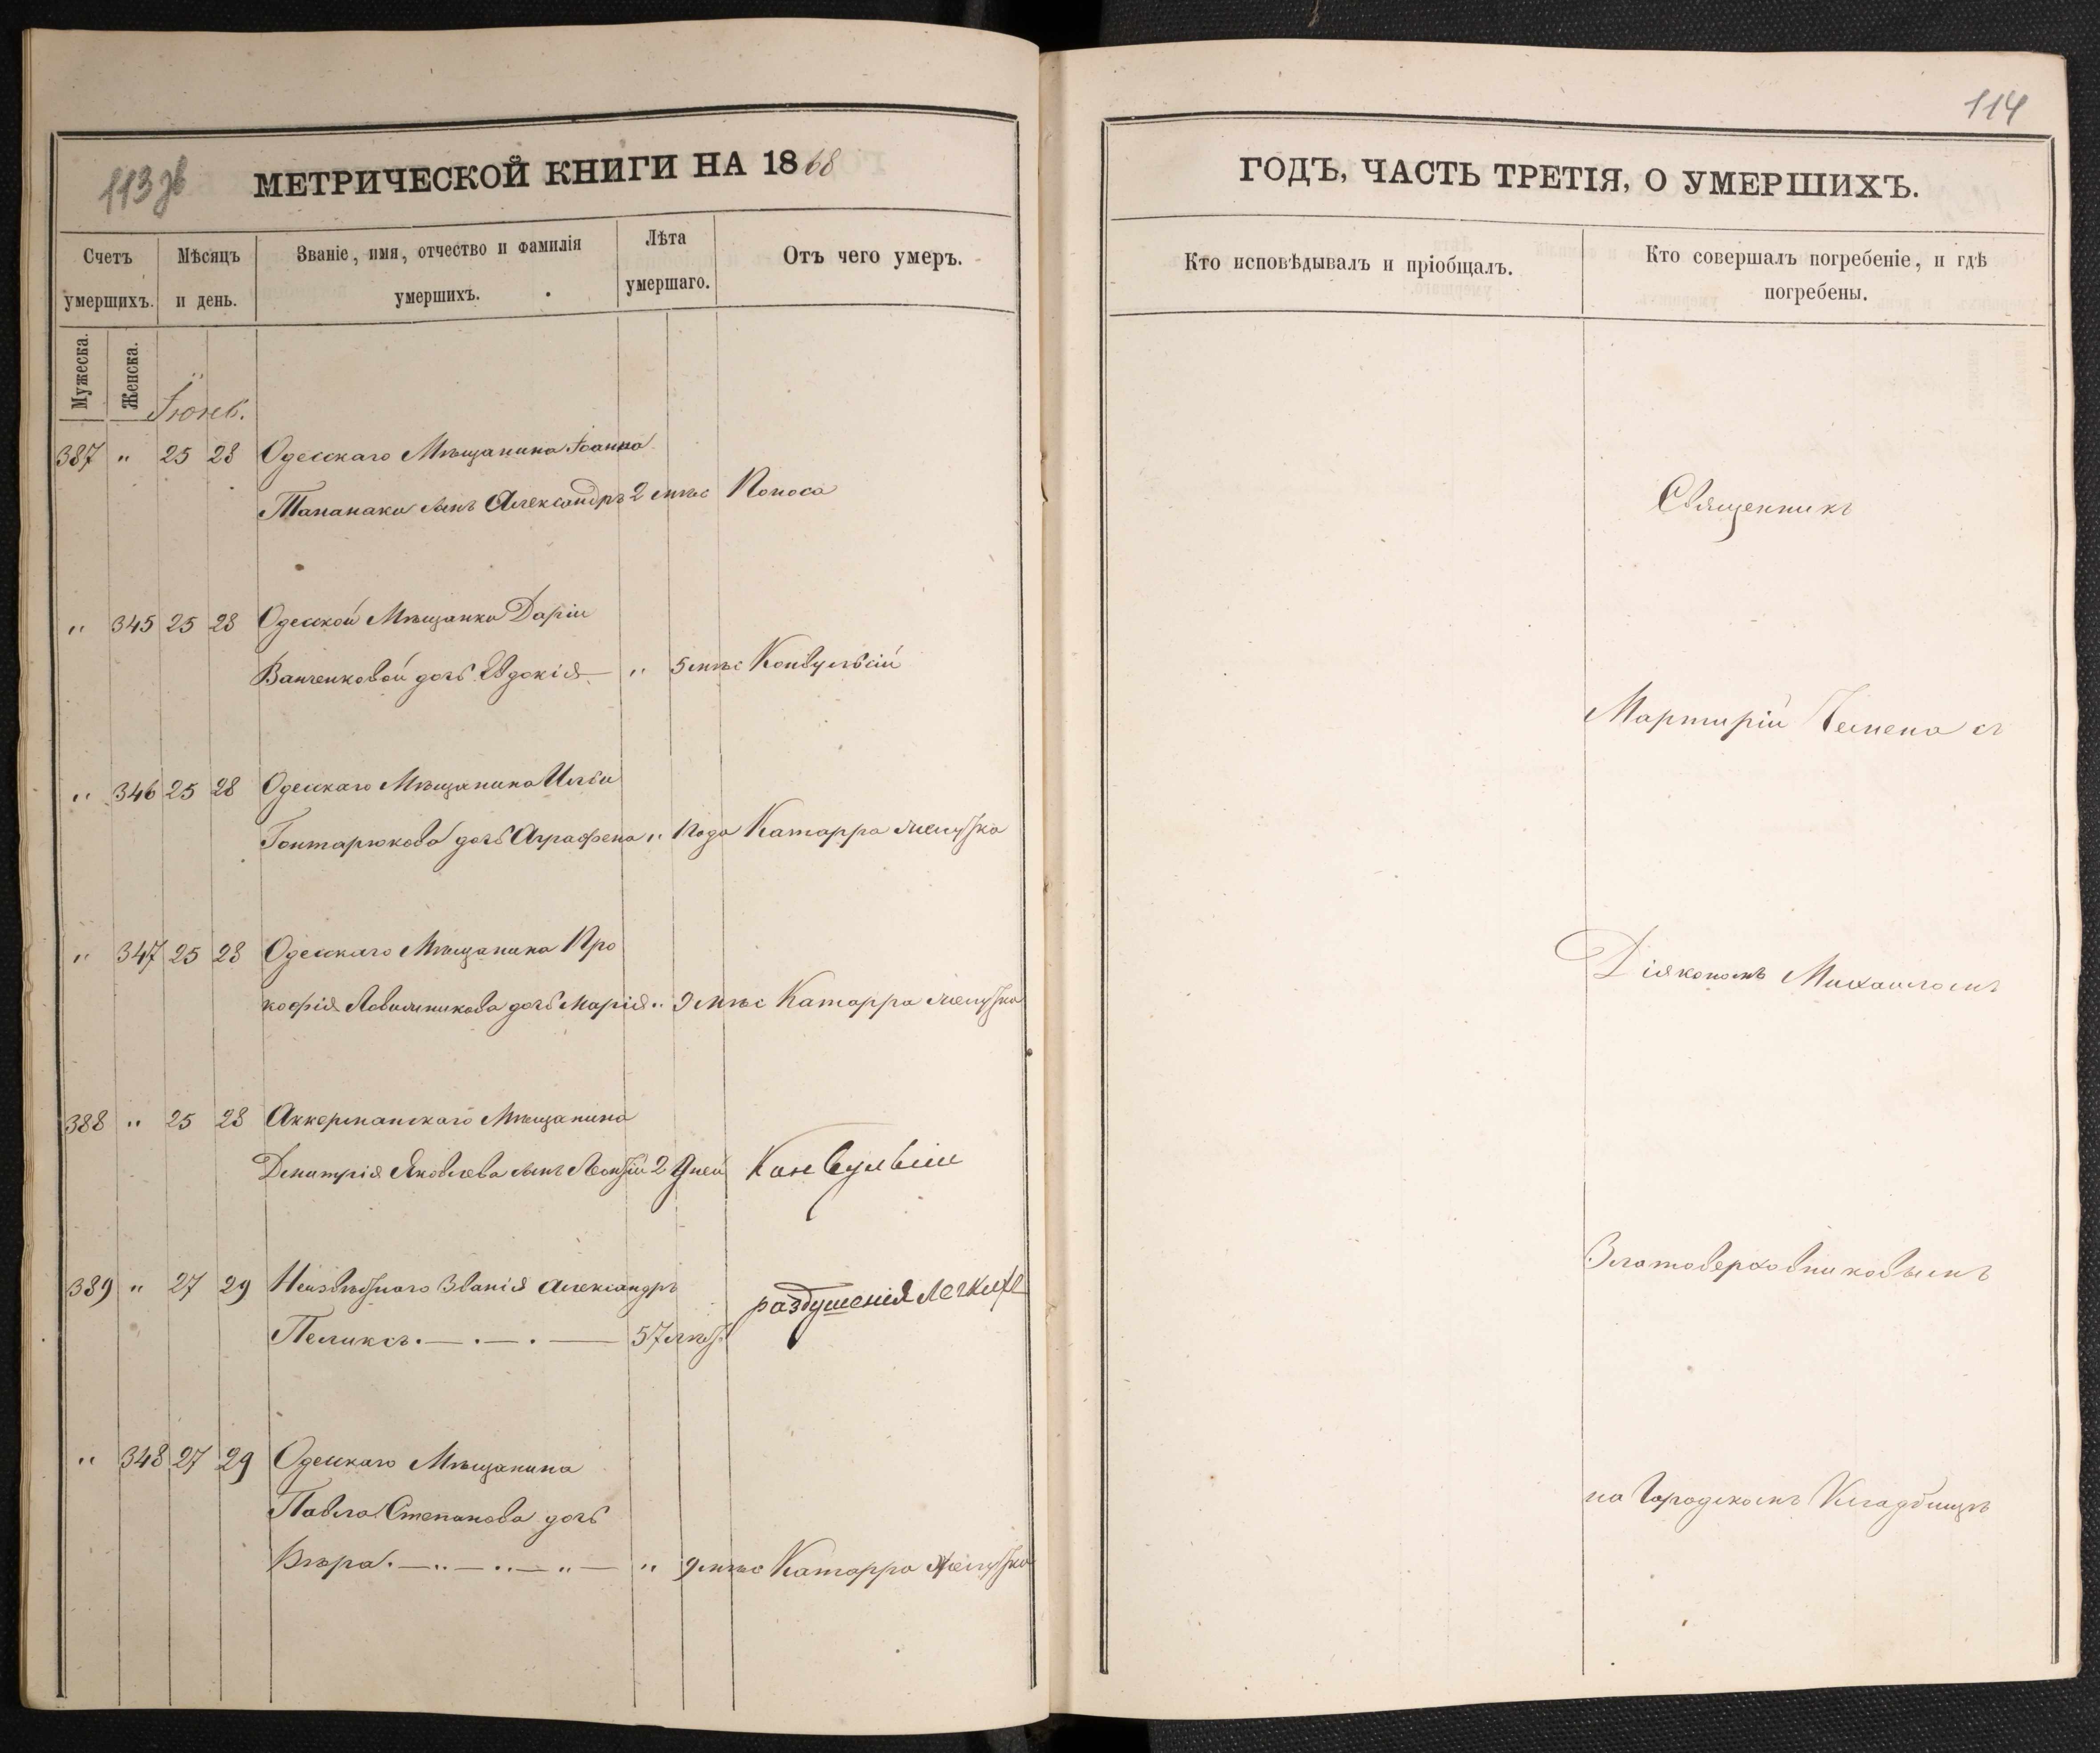 113 об
МЕТРИЧЕСКОЙ КНИГИ НА 1868
Счетъ умершихъ.
Мѣсяцъ и день.
Званіе, имя, отчество и фамилія умершихъ.
Лѣта умершаго.
Отъ чего умеръ.
Мужеска.
Женска.
Іюнь.
387 " 25 28 Одесскаго Мѣщанина Іоанна
Тананаки сынъ Александръ 2 мѣс Поноса
" 345 25 28 Одесской Мѣщанки Даріи
Ванченковой дочь Евдокія — " 5 мѣс Конвульсій
" 346 25 28 Одесскаго Мѣщанина Ильи
Гонтарюкова дочь Аграфена " 1 Года Катарра желудка
" 347 25 28 Одесскаго Мѣщанина Про
кофія дочь Марія " 9 мѣс Катарра желудка
388 " 25 28 Аккерманскаго Мѣщанина
Димитрія Яковлева сынъ 2 дней Конвульсіи
389 " 27 29 Неизвѣстнаго Званія Александръ
Пеликсъ. — . — . — 57 лѣтъ легкихъ
" 348 27 29 Одесскаго Мѣщанина
Павла Степанова дочь
Вѣра. — " — " — " — " 9 мѣс Катарра Желудка
114
ГОДЪ, ЧАСТЬ ТРЕТІЯ, О УМЕРШИХЪ.
Кто исповѣдывалъ и пріобщалъ.
Кто совершалъ погребеніе, и гдѣ погребены.
Священникъ
Мартирій Чемена съ
Діякономъ Михаиломъ
Златоверховниковымъ
на Городскомъ Кладбищѣ